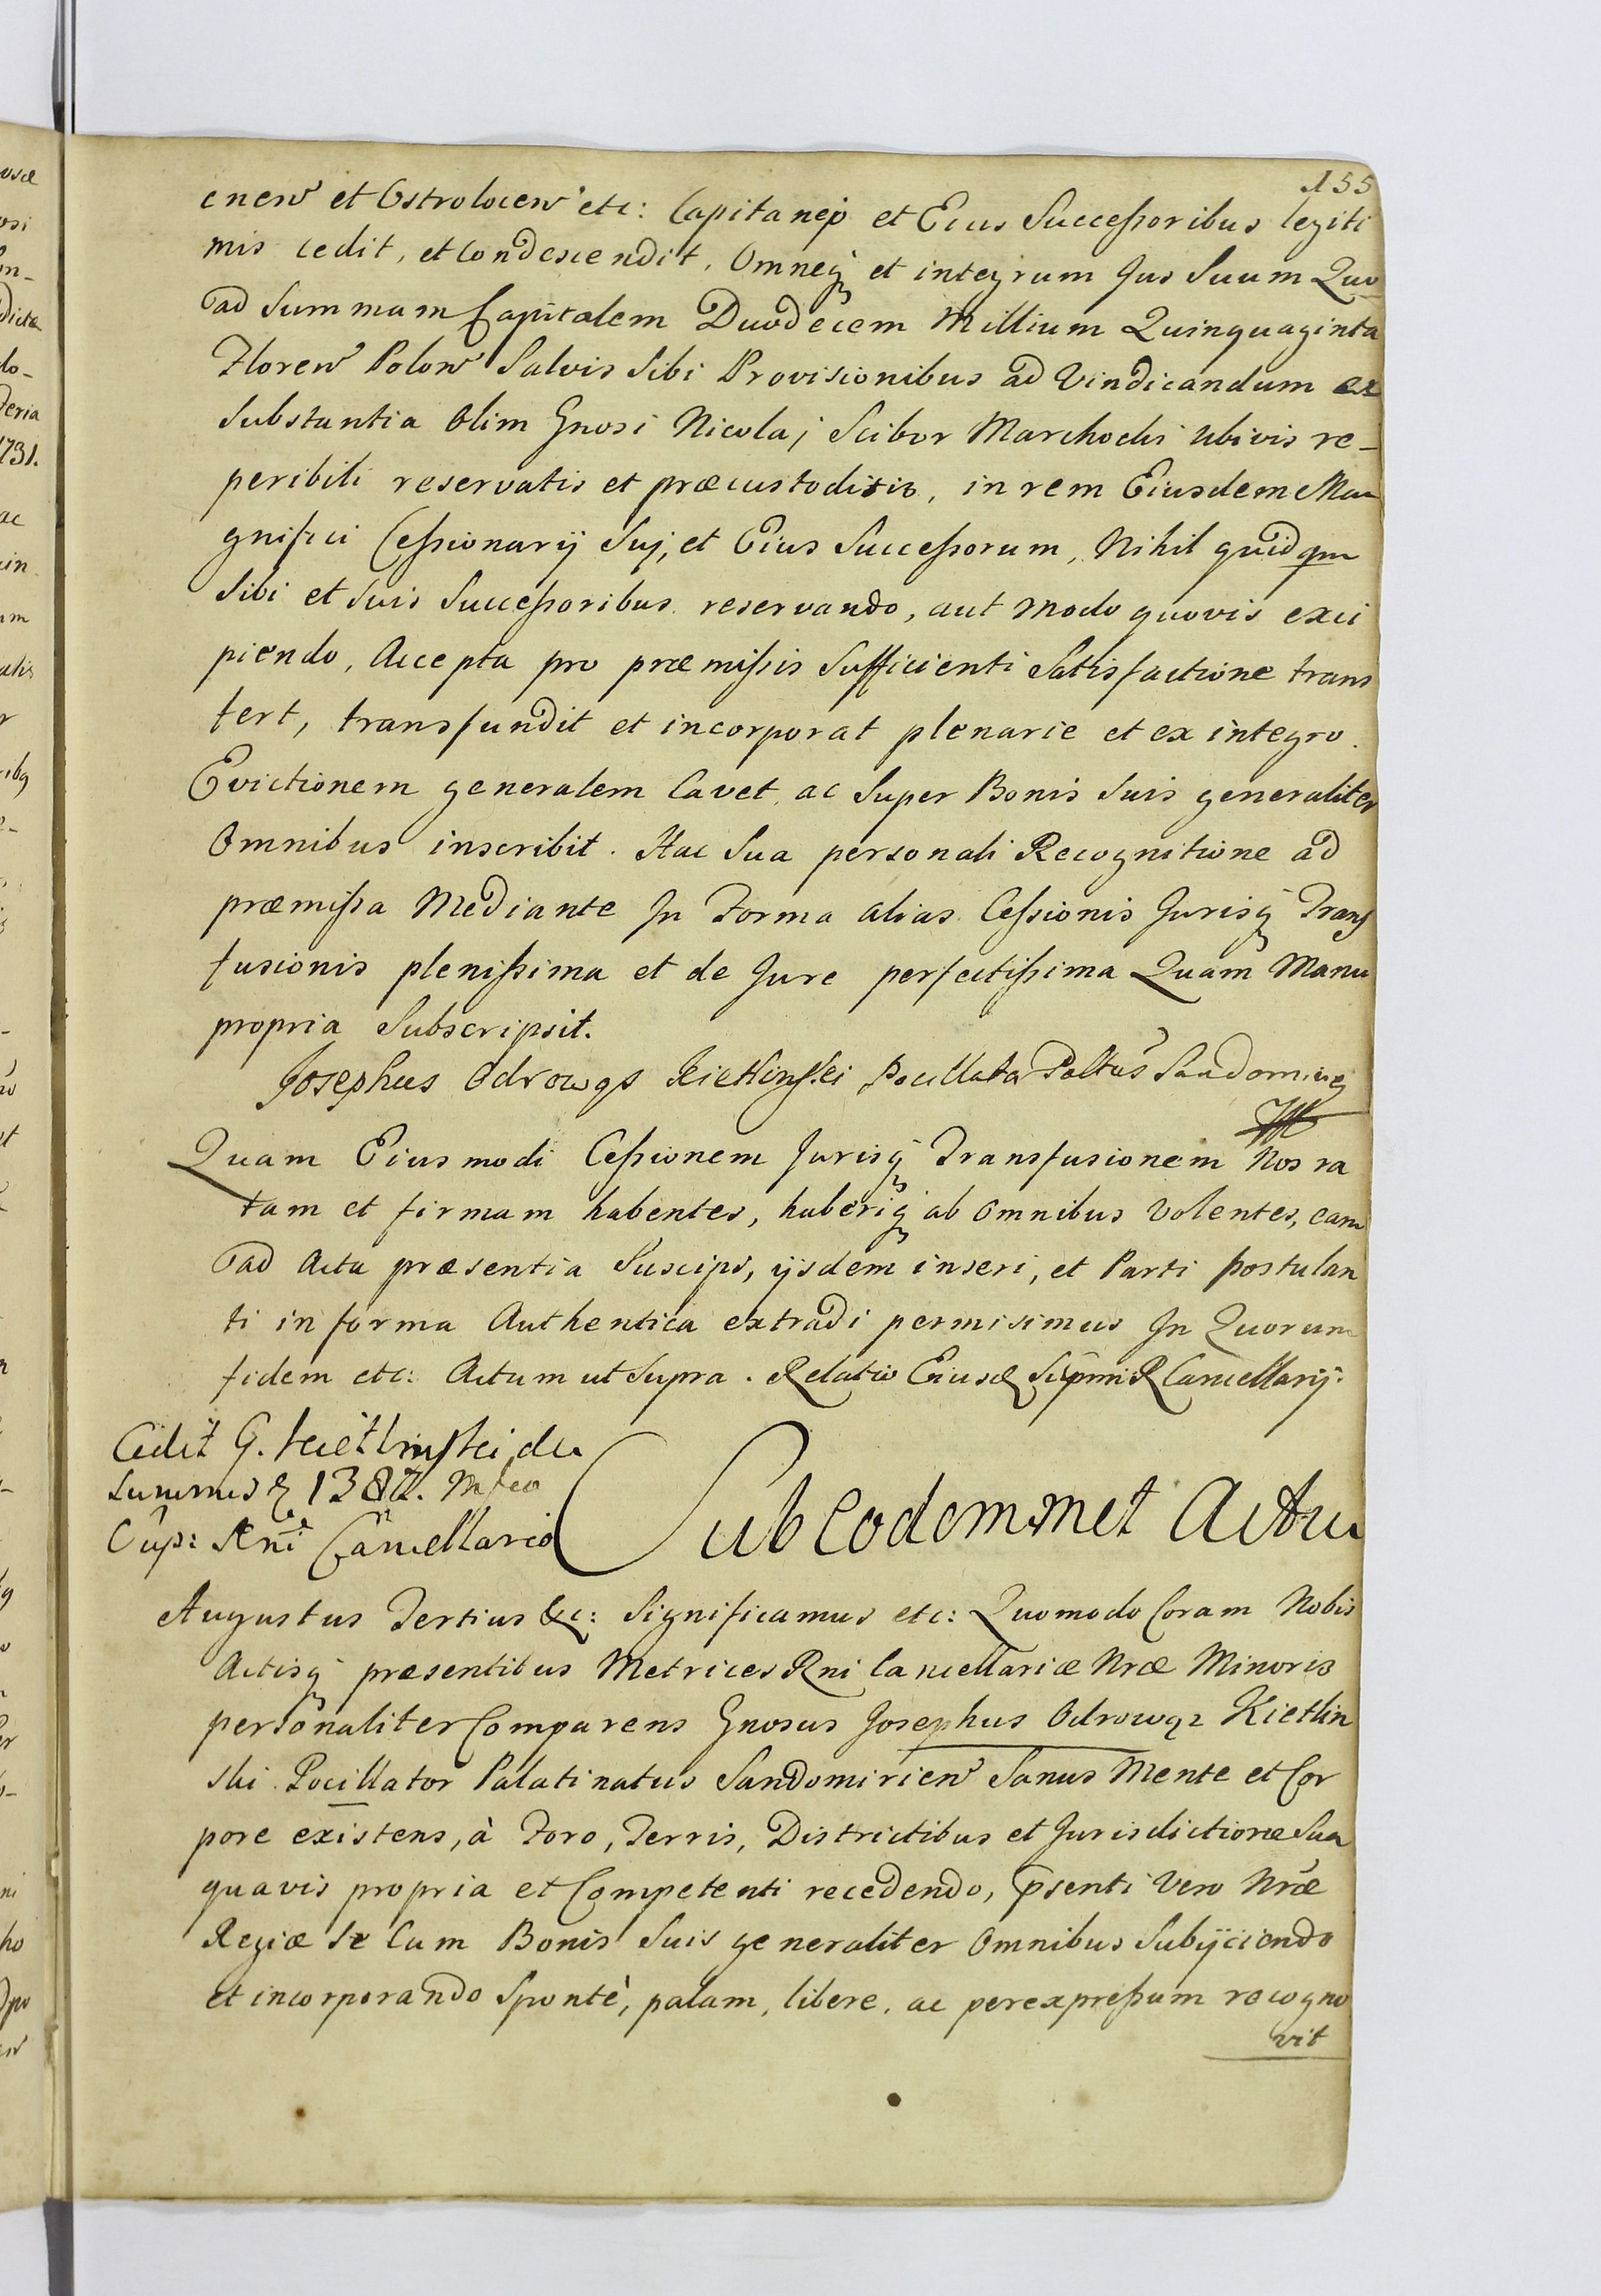 155
cnen et Ostrolocen etc: Capitanej et Eius Succeßoribus legiti
mis cedit, et Condescendit, Omneq3 et integrum Jus Suum Quo
ad Summam Capitalem Duodecem Millium Quinquaginta
Floren Polon Salvis Sibi Provisionibus ad Vindicandum ex
Substantia Olim Gnosi Nicolaj Scibor Marchocki ubivis re-
peribili reservatis et præcustoditis, in rem Eiusdem Ma
gnifici Ceßionarij Suj, et Eius Succeßorum, Nihil quidqm
Sibi et Suis Succeßoribus reservando, aut modo quovis exci
piendo, Accepta pro præmißis Sufficienti Satisfactione trans
fert, transfundit et incorporat plenarie et ex integro.
Evictionem generalem Cavet, ac Super Bonis Suis generaliter
Omnibus inscribit. Hac Sua personali Recognitione ad
præmißa Mediante In Forma alias Ceßionis Jurisq3 Trans
fusionis plenißima et de Jure perfectißima Quam Manu
propria Subscripsit.
Josephus Odrowąs Kietlinski Pocillator Paltus Sandomirien
Quam Eiusmodi Ceßionem Jurisq3 Transfusionem Nos ra
tam et firmam habentes, haberiq3 ab Omnibus Volentes, eam
ad Acta præsentia Suscipi, ijsdem inseri, et Parti postulan
ti in forma Authentica extradi permisimus In Quorum
fidem etc: Actum ut Supra. Relatio Eiusd Supmi R Cancellarij.
Cedit G. Kietlinski de
Summis 1382. Mfco
Cup: Rni Cancellario
Sub Eodemmet Actu
Augustus Tertius &c: Significamus etc: Quomodo Coram Nobis
Actisq3 præsentibus Metrices Rni Cancellariæ Nræ Minoris
personaliter Comparens Gnosus Josephus Odrowąz Kietlin
ski Pocillator Palatinatus Sandomirien Sanus Mente et Cor
pore existens, à Foro, Terris, Districtibus et Jurisdictione Sua
quavis propria et Competenti recedendo, psenti Vero Nræ
Regiæ Se Cum Bonis Suis generaliter Omnibus Subijciendo
et incorporando Sponte, palam, libere, ac per expreßum recogno
vit